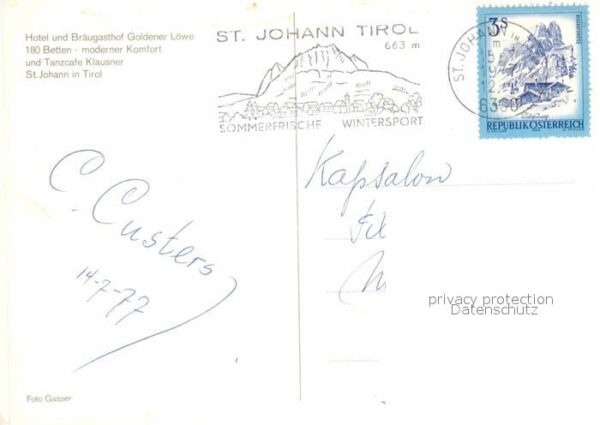 Hotel und Bräugasthof Goldener Löwe
180 Betten - moderner Komfort
und Tanzcafe Klausner
St.Johann in Tirol
ST. JOHANN TIROL
663 m
SOMMERFRISCHE WINTERSPORT
ST. JOHANN IN
6380
3S
REPUBLIK ÖSTERREICH
C. Custers
14-7-77
Kapsalon
privacy protection
Datenschutz
Foto Gasser